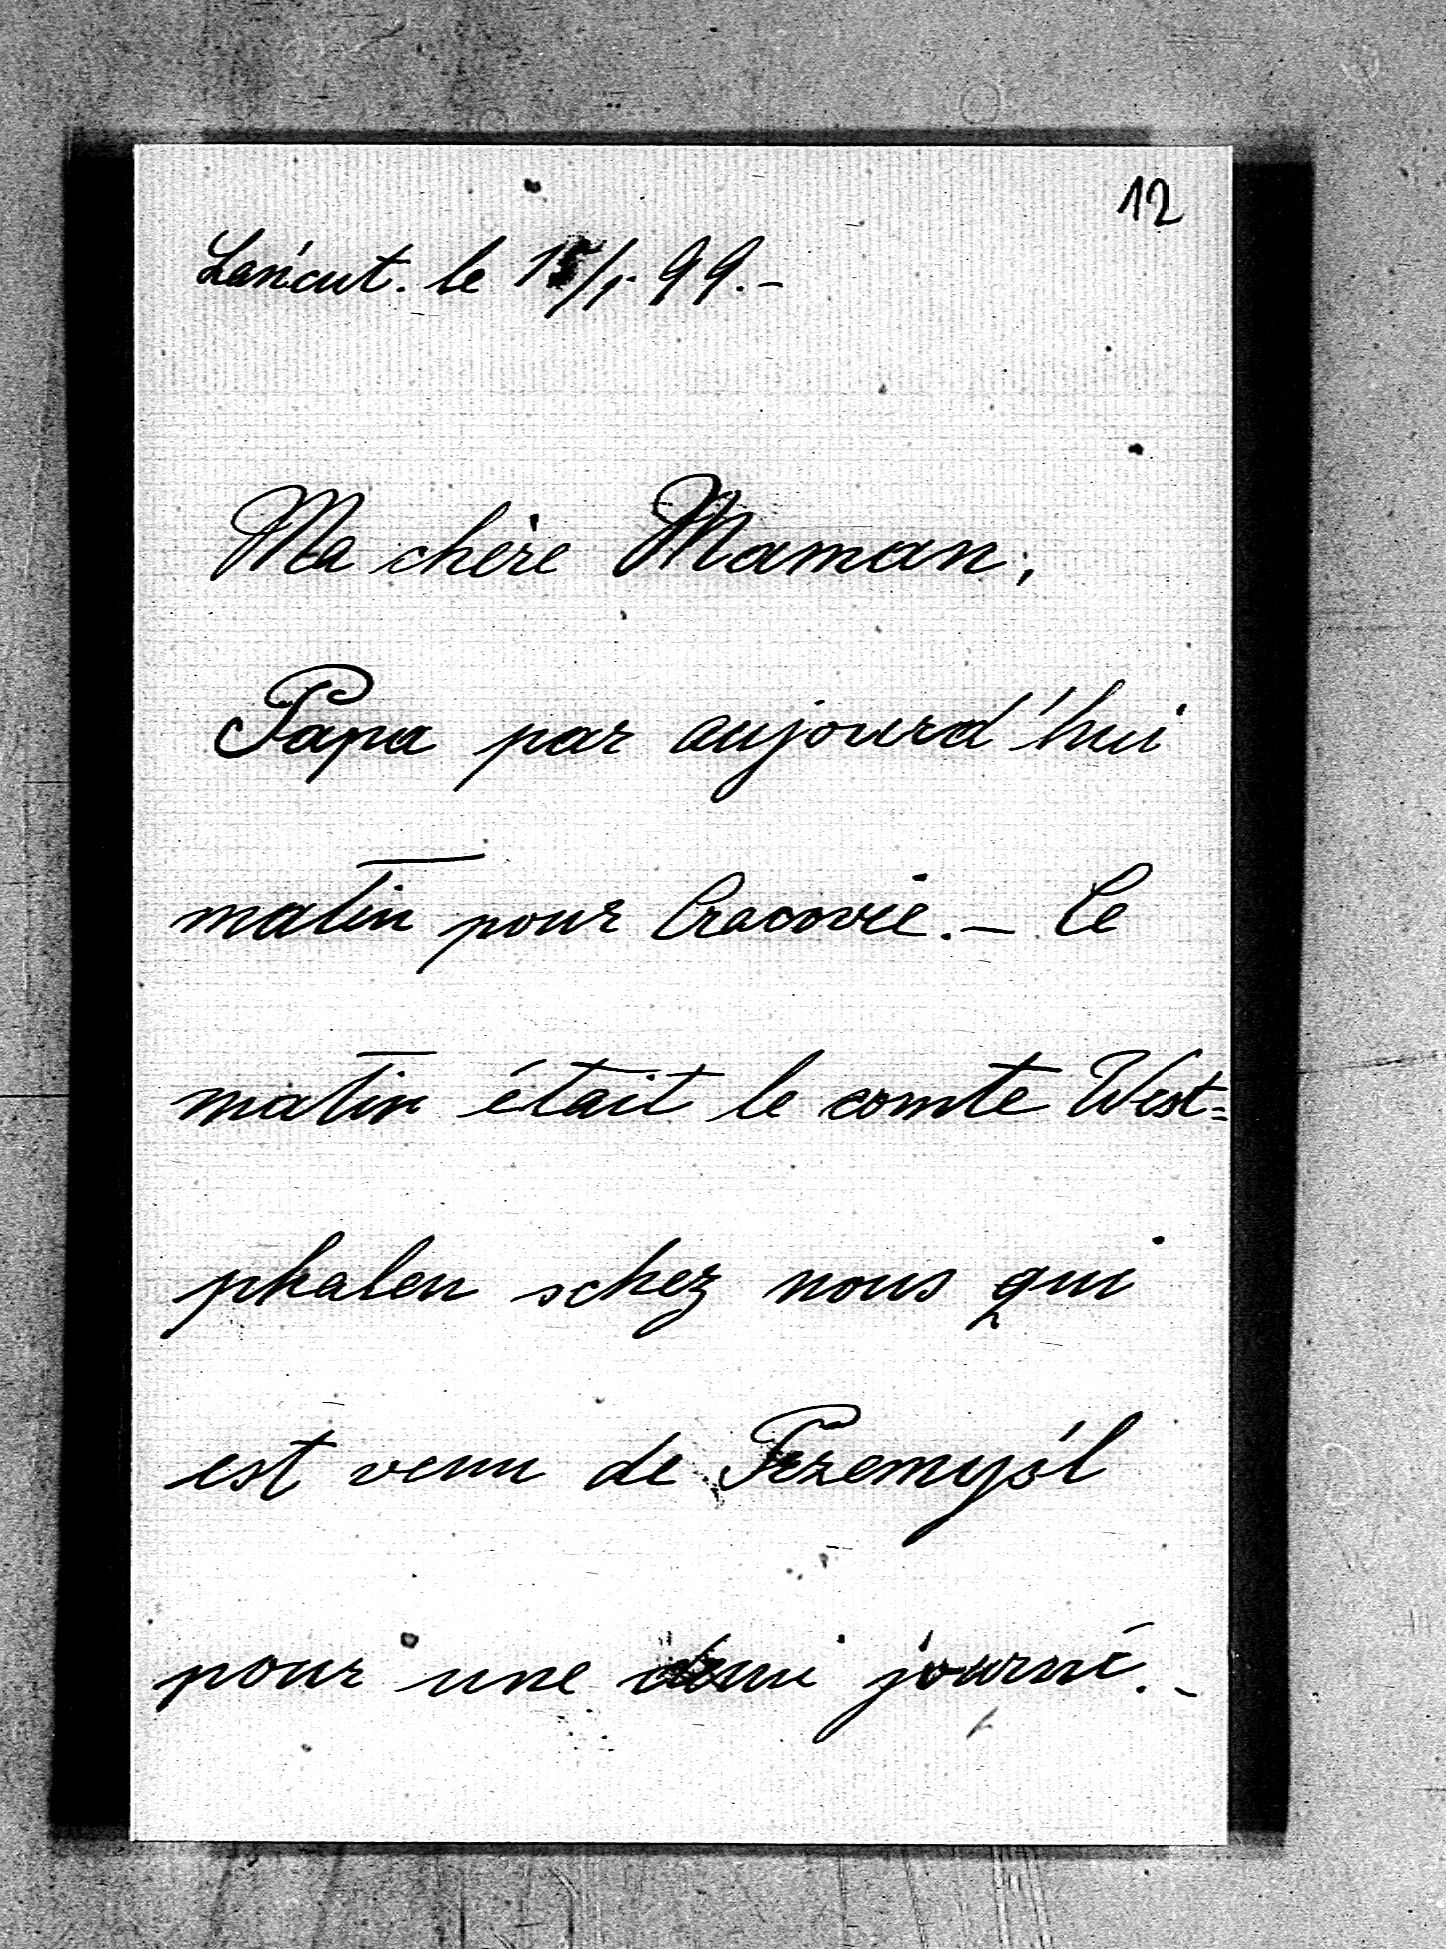 12
Lańcut. le 15/1. 99.-
Ma chère Maman,
Papa par aujourd'hui
matin pour Cracovie.- Ce
matin était le comte West=
phalen schez nous qui
est venu de Przemyśl
pour une demi journé.-